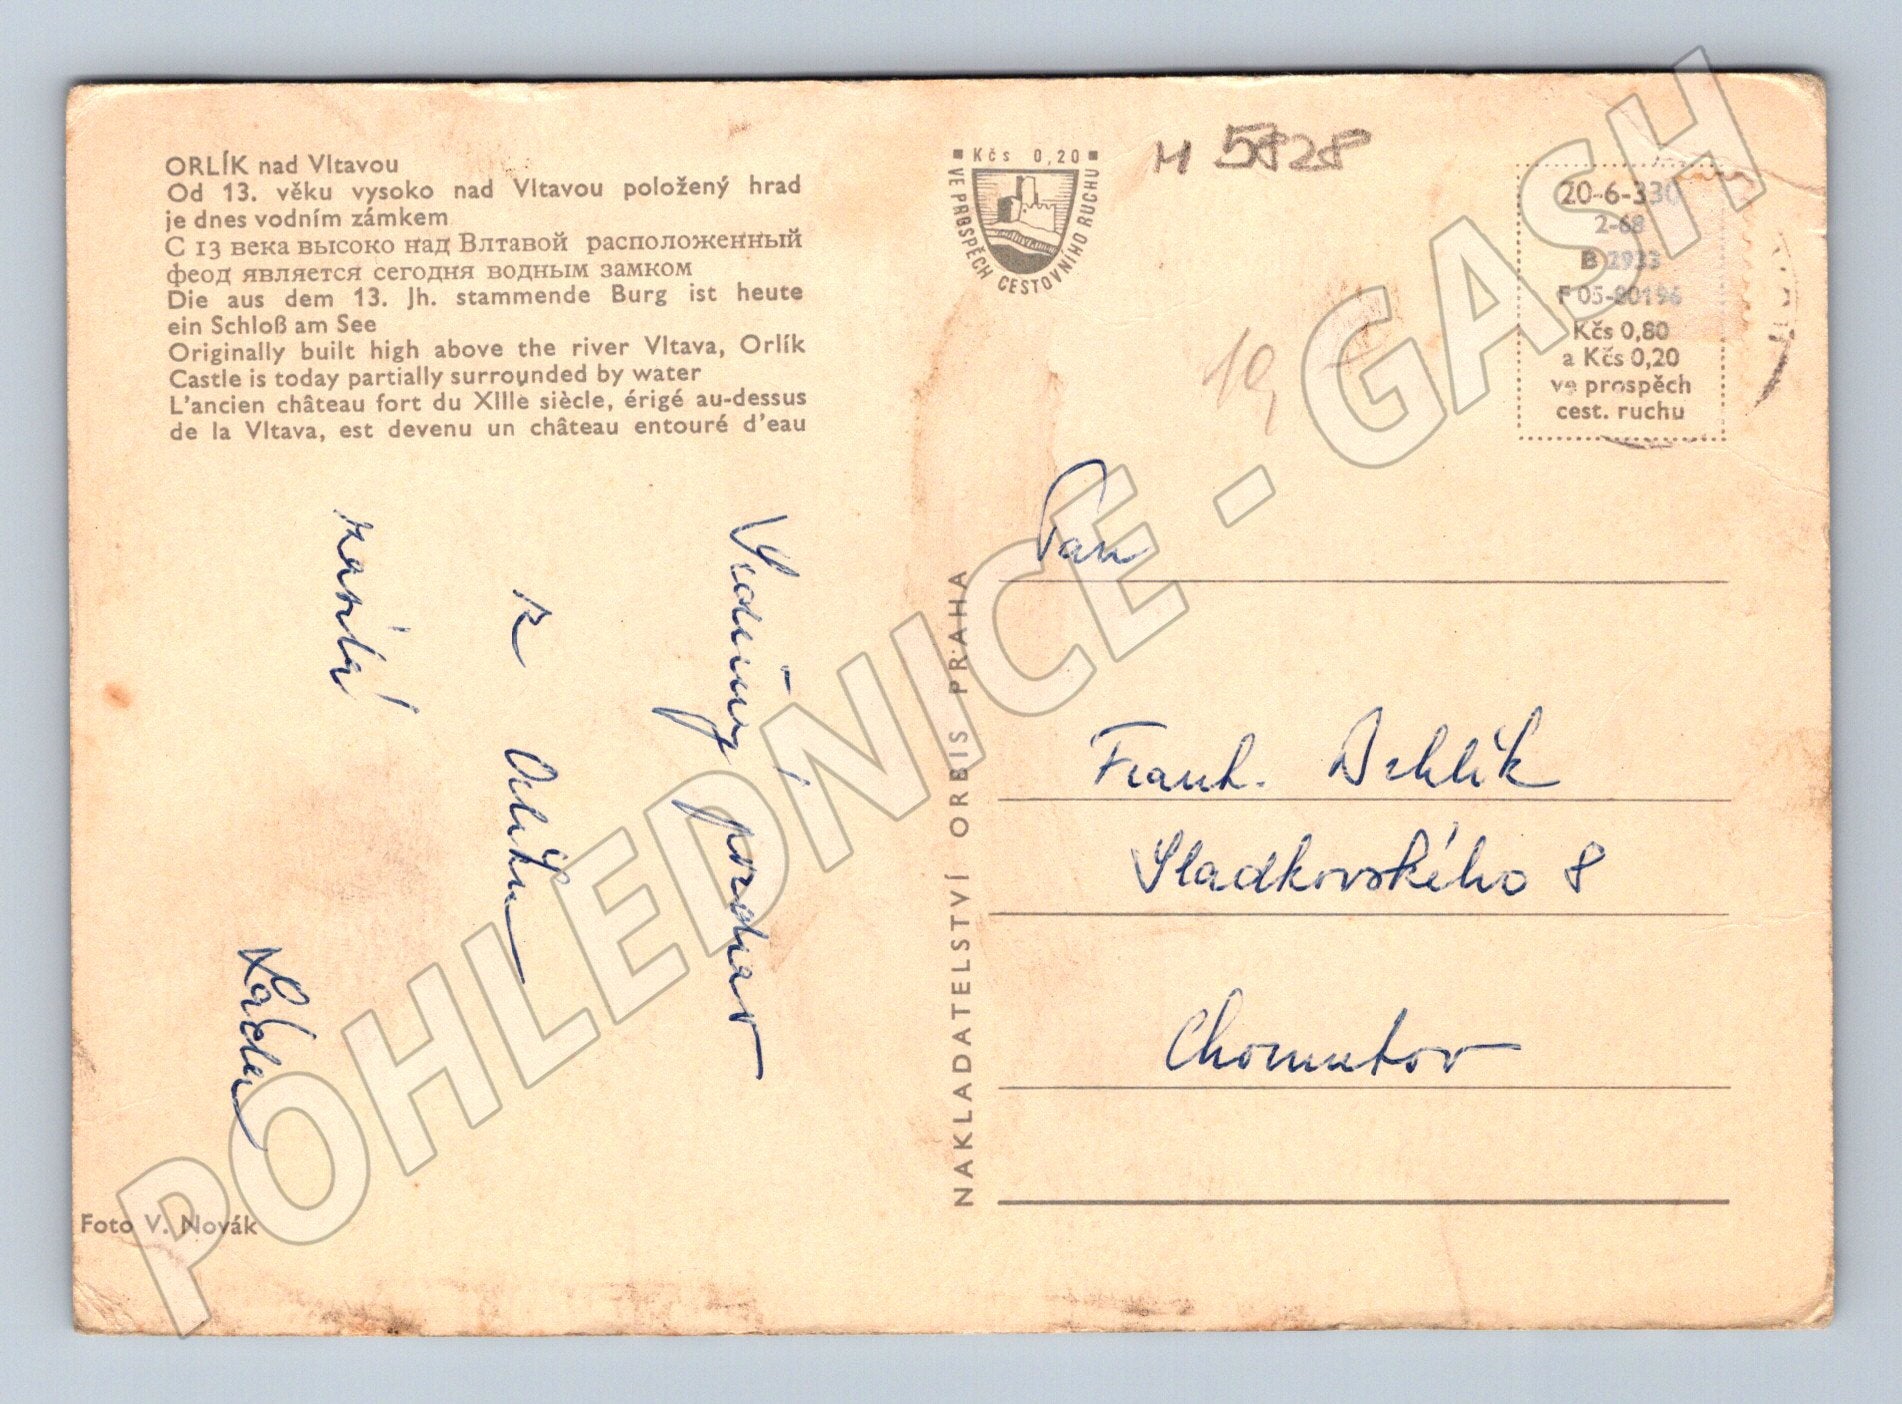 ORLÍK nad Vltavou
Od 13. věku vysoko nad Vltavou položený hrad
je dnes vodním zámkem
С 13 века высоко над Влтавой расположенный
феод является сегодня водным замком
Die aus dem 13. Jh. stammende Burg ist heute
ein Schloß am See
Originally built high above the river Vltava, Orlík
Castle is today partially surrounded by water
L'ancien château fort du XIIIe siècle, érigé au-dessus
de la Vltava, est devenu un château entouré d'eau
Srdečný pozdrav
z Orlíku
zasílá
Foto V. Novák
NAKLADATELSTVÍ ORBIS PRAHA
Kčs 0,20
VE PROSPĚCH CESTOVNÍHO RUCHU
M 5828
19,
20-6-330
2-68
B 2933
F 05-80196
Kčs 0,80
a Kčs 0,20
ve prospěch
cest. ruchu
Pan
Frant.
Sladkovského 8
Chomutov
POHLEDNICE - GASH